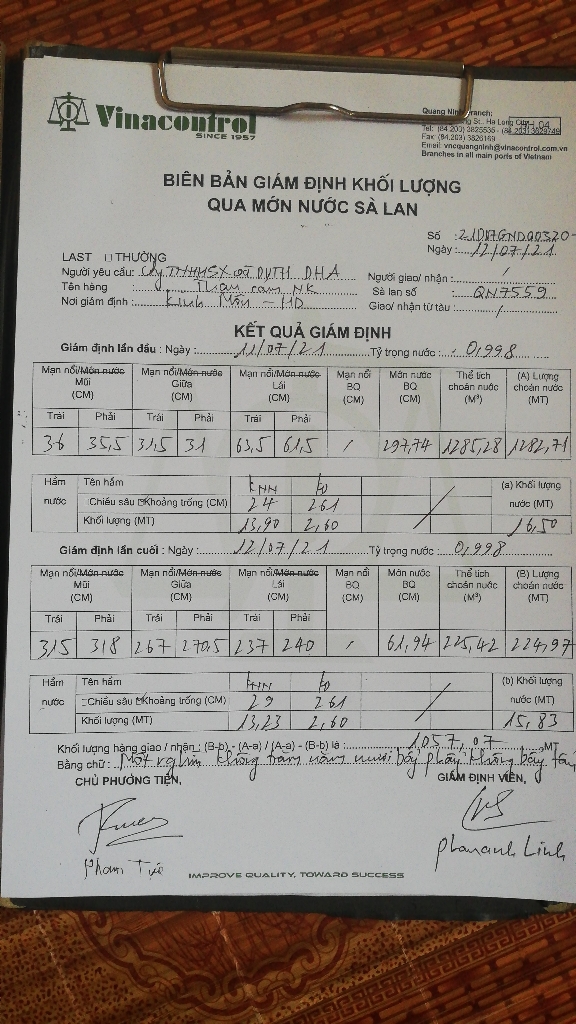 Vinacontrol
SINCE 1957
Quang Ninh Branch:
St., Ha Long City
Tel: (84.203) 3825535 - (84.203) 3829749
Fax: (84.203) 3826169
Email: vncquangninh@vinacontrol.com.vn
Branches in all main ports of Vietnam
BIÊN BẢN GIÁM ĐỊNH KHỐI LƯỢNG
QUA MỚN NƯỚC SÀ LAN
Số : 21D07GND00320-
Ngày : 12/07/21
LAST □ THƯỜNG
Người yêu cầu: Cty TNHHSX và DVTH DHA Người giao/ nhận : /
Tên hàng : Than cám NK Sà lan số : QN7559
Nơi giám định : Kinh Môn - HD Giao/ nhận từ tàu : /
KẾT QUẢ GIÁM ĐỊNH
Giám định lần đầu : Ngày : 11/07/21 Tỷ trọng nước : 0,998
Mạn nổi/Món nước Mũi (CM) Mạn nổi/Món nước Giữa (CM) Mạn nổi/Món nước Lái (CM) Mạn nổi BQ (CM) Món nước BQ (CM) Thể tích choán nước (M³) (A) Lượng choán nước (MT)
Trái Phải Trái Phải Trái Phải
36 35,5 31,5 31 63,5 61,5 / 297,74 1285,28 1282,71
Hầm nước Tên hầm (a) Khối lượng nước (MT)
Chiều sâu Khoảng trống (CM) 24 261
Khối lượng (MT) 13,90 2,60 16,50
Giám định lần cuối : Ngày : 12/07/21 Tỷ trọng nước : 0,998
Mạn nổi/Món nước Mũi (CM) Mạn nổi/Món nước Giữa (CM) Mạn nổi/Món nước Lái (CM) Mạn nổi BQ (CM) Món nước BQ (CM) Thể tích choán nước (M³) (B) Lượng choán nước (MT)
Trái Phải Trái Phải Trái Phải
315 318 267 270,5 237 240 / 61,94 225,42 224,97
Hầm nước Tên hầm (b) Khối lượng nước (MT)
□Chiều sâu Khoảng trống (CM) 29 261
Khối lượng (MT) 13,23 2,60 15,83
Khối lượng hàng giao / nhận : (B-b) - (A-a) / (A-a) - (B-b) là : 1.057,07 MT
Bằng chữ : Một nghìn không trăm năm mươi bảy phẩy không bảy tấn
CHỦ PHƯƠNG TIỆN, GIÁM ĐỊNH VIÊN,
Phạm Phan anh Linh
IMPROVE QUALITY, TOWARD SUCCESS